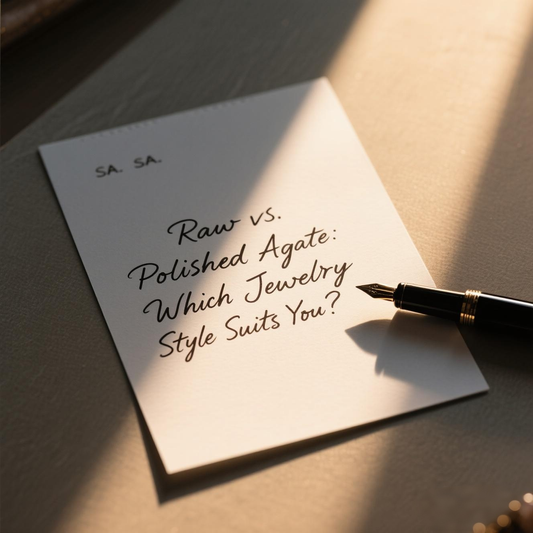 SA. SA.
Raw vs.
Polished Agate:
Which Jewelry
Style Suits You?